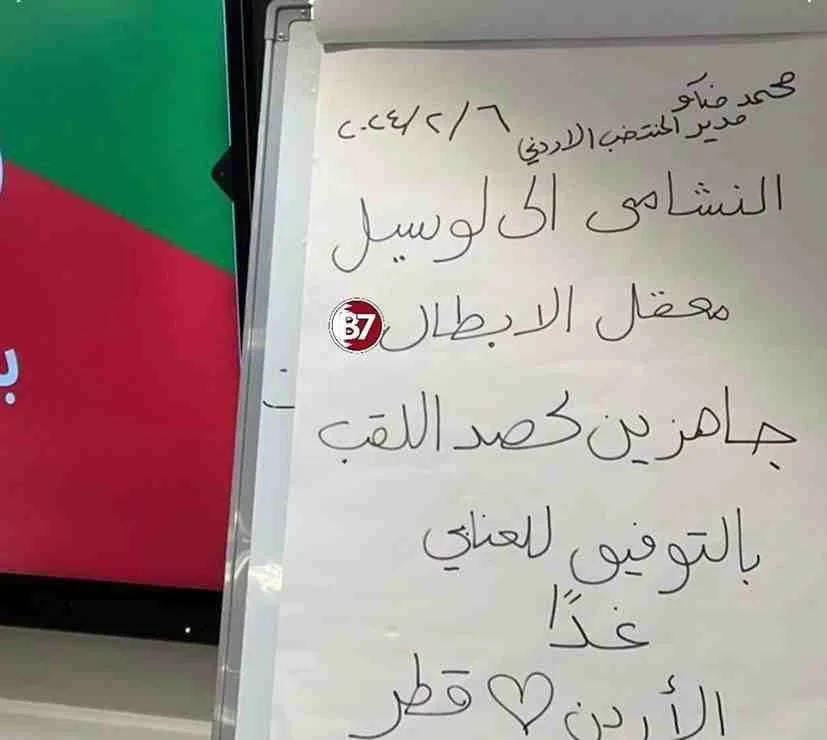 محمد خناكو
مدير المنتخب الاردني
٢٠٢٤/٢/٦
النشامى الى لوسيل
معقل الابطال
B7
جاهزين لحصد اللقب
بالتوفيق للعنابي
غدًا
الأردن ♡ قطر